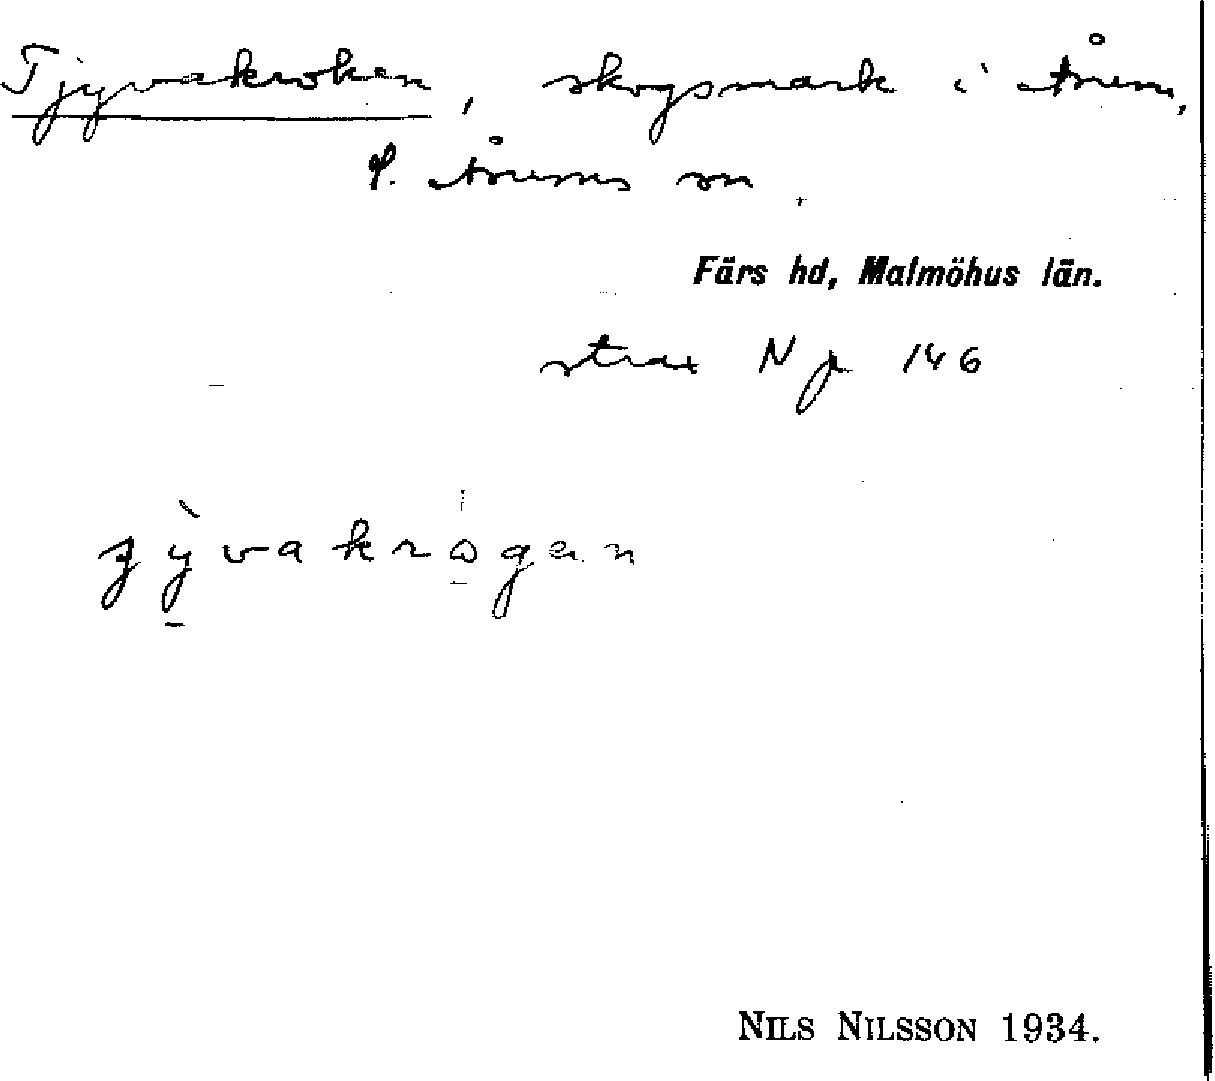 Tjyvakroken, skogsmark i Årum,
S. Årums sn.
Färs hd, Malmöhus län.
strax N p 146
ȷỳvakrogan
NILS NILSSON 1934.